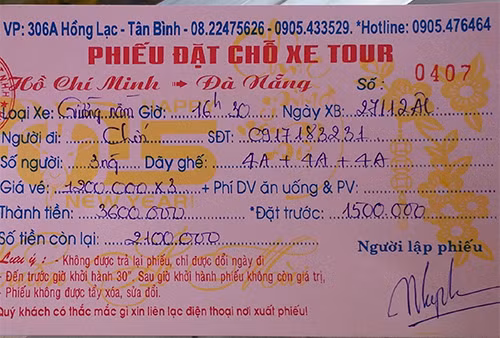 VP: 306A Hồng Lạc - Tân Bình - 08.22475626 - 0905.433529. *Hotline: 0905.476464
PHIẾU ĐẶT CHỖ XE TOUR
Hồ Chí Minh → Đà Nẵng Số: 0407
Loại Xe: Giường nằm Giờ: 16h30 Ngày XB: 27/12 ÂL
Người đi: SĐT: 0917183231
Số người: 3ng Dãy ghế: 4A + 4A + 4A
Giá vé: 1.200.000 x 3 + Phí DV ăn uống & PV:
Thành tiền: 3600.000 *Đặt trước: 1500.000
Số tiền còn lại: 2100.000
Người lập phiếu
Lưu ý: - Không được trả lại phiếu, chỉ được đổi ngày đi
- Đến trước giờ khởi hành 30". Sau giờ khởi hành phiếu không còn giá trị,
- Phiếu không được tẩy xóa, sửa đổi.
Quý khách có thắc mắc gì xin liên lạc điện thoại nơi xuất phiếu!
HAPPY
NEW YEAR!